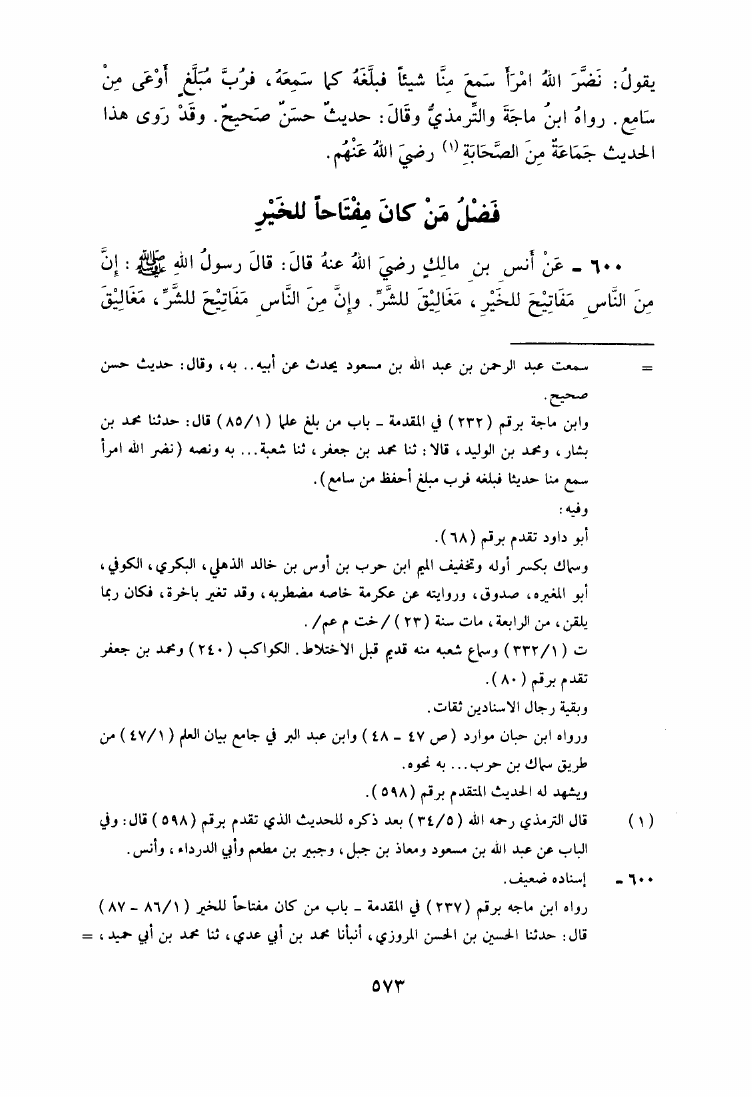 يقولُ: نَضَّرَ اللهُ امْرَأَ سَمِعَ مِنَّا شيئاً فبلَّغَهُ كما سَمِعَهُ، فرُبَّ مُبَلَّغٍ أَوْعَى مِنْ
سَامِعٍ. رواهُ ابنُ ماجَةَ والتِّرمذيُّ وقَالَ: حديثٌ حسَنٌ صَحيحٌ. وقَدْ رَوى هذا
الحديث جَمَاعَةٌ مِنَ الصَّحَابَةِ (١) رضيَ اللهُ عَنْهُم.
فَضْلُ مَنْ كانَ مِفْتَاحاً للخَيْرِ
٦٠٠ ـ عَنْ أَنسِ بنِ مالِكٍ رضيَ اللهُ عنهُ قالَ: قالَ رسولُ اللهِ ﷺ: إنَّ
مِنَ النَّاسِ مَفَاتِيْحَ للخَيْرِ، مَغَالِيْقَ للشَّرِّ. وإنَّ مِنَ النَّاسِ مَفَاتِيْحَ للشَّرِّ، مَغَالِيْقَ
= سمعت عبد الرحمن بن عبد الله بن مسعود يحدث عن أبيه.. به، وقال: حديث حسن
صحيح.
وابن ماجة برقم (٢٣٢) في المقدمة ـ باب من بلغ علما (٨٥/١) قال: حدثنا محمد بن
بشار، ومحمد بن الوليد، قالا: ثنا محمد بن جعفر، ثنا شعبة... به ونصه (نضر الله امرأ
سمع منا حديثا فبلغه فرب مبلغ أحفظ من سامع).
وفيه:
أبو داود تقدم برقم (٦٨).
وسماك بكسر أوله وتخفيف الميم ابن حرب بن أوس بن خالد الذهلي، البكري، الكوفي،
أبو المغيره، صدوق، وروايته عن عكرمة خاصه مضطربه، وقد تغير باخرة، فكان ربما
يلقن، من الرابعة، مات سنة (٢٣) /خت م عم/.
ت (٣٣٢/١) وسماع شعبه منه قديم قبل الاختلاط. الكواكب (٢٤٠) ومحمد بن جعفر
تقدم برقم (٨٠).
وبقية رجال الاسنادين ثقات.
ورواه ابن حبان موارد (ص ٤٧ ـ ٤٨) وابن عبد البر في جامع بيان العلم (٤٧/١) من
طريق سماك بن حرب... به نحوه.
ويشهد له الحديث المتقدم برقم (٥٩٨).
(١) قال الترمذي رحمه الله (٣٤/٥) بعد ذكره للحديث الذي تقدم برقم (٥٩٨) قال: وفي
الباب عن عبد الله بن مسعود ومعاذ بن جبل، وجبير بن مطعم وأبي الدرداء، وأنس.
٦٠٠ ـ إسناده ضعيف.
رواه ابن ماجه برقم (٢٣٧) في المقدمة ـ باب من كان مفتاحاً للخير (٨٦/١ ـ ٨٧)
قال: حدثنا الحسين بن الحسن المروزي، أنبأنا محمد بن أبي عدي، ثنا محمد بن أبي حميد، =
٥٧٣